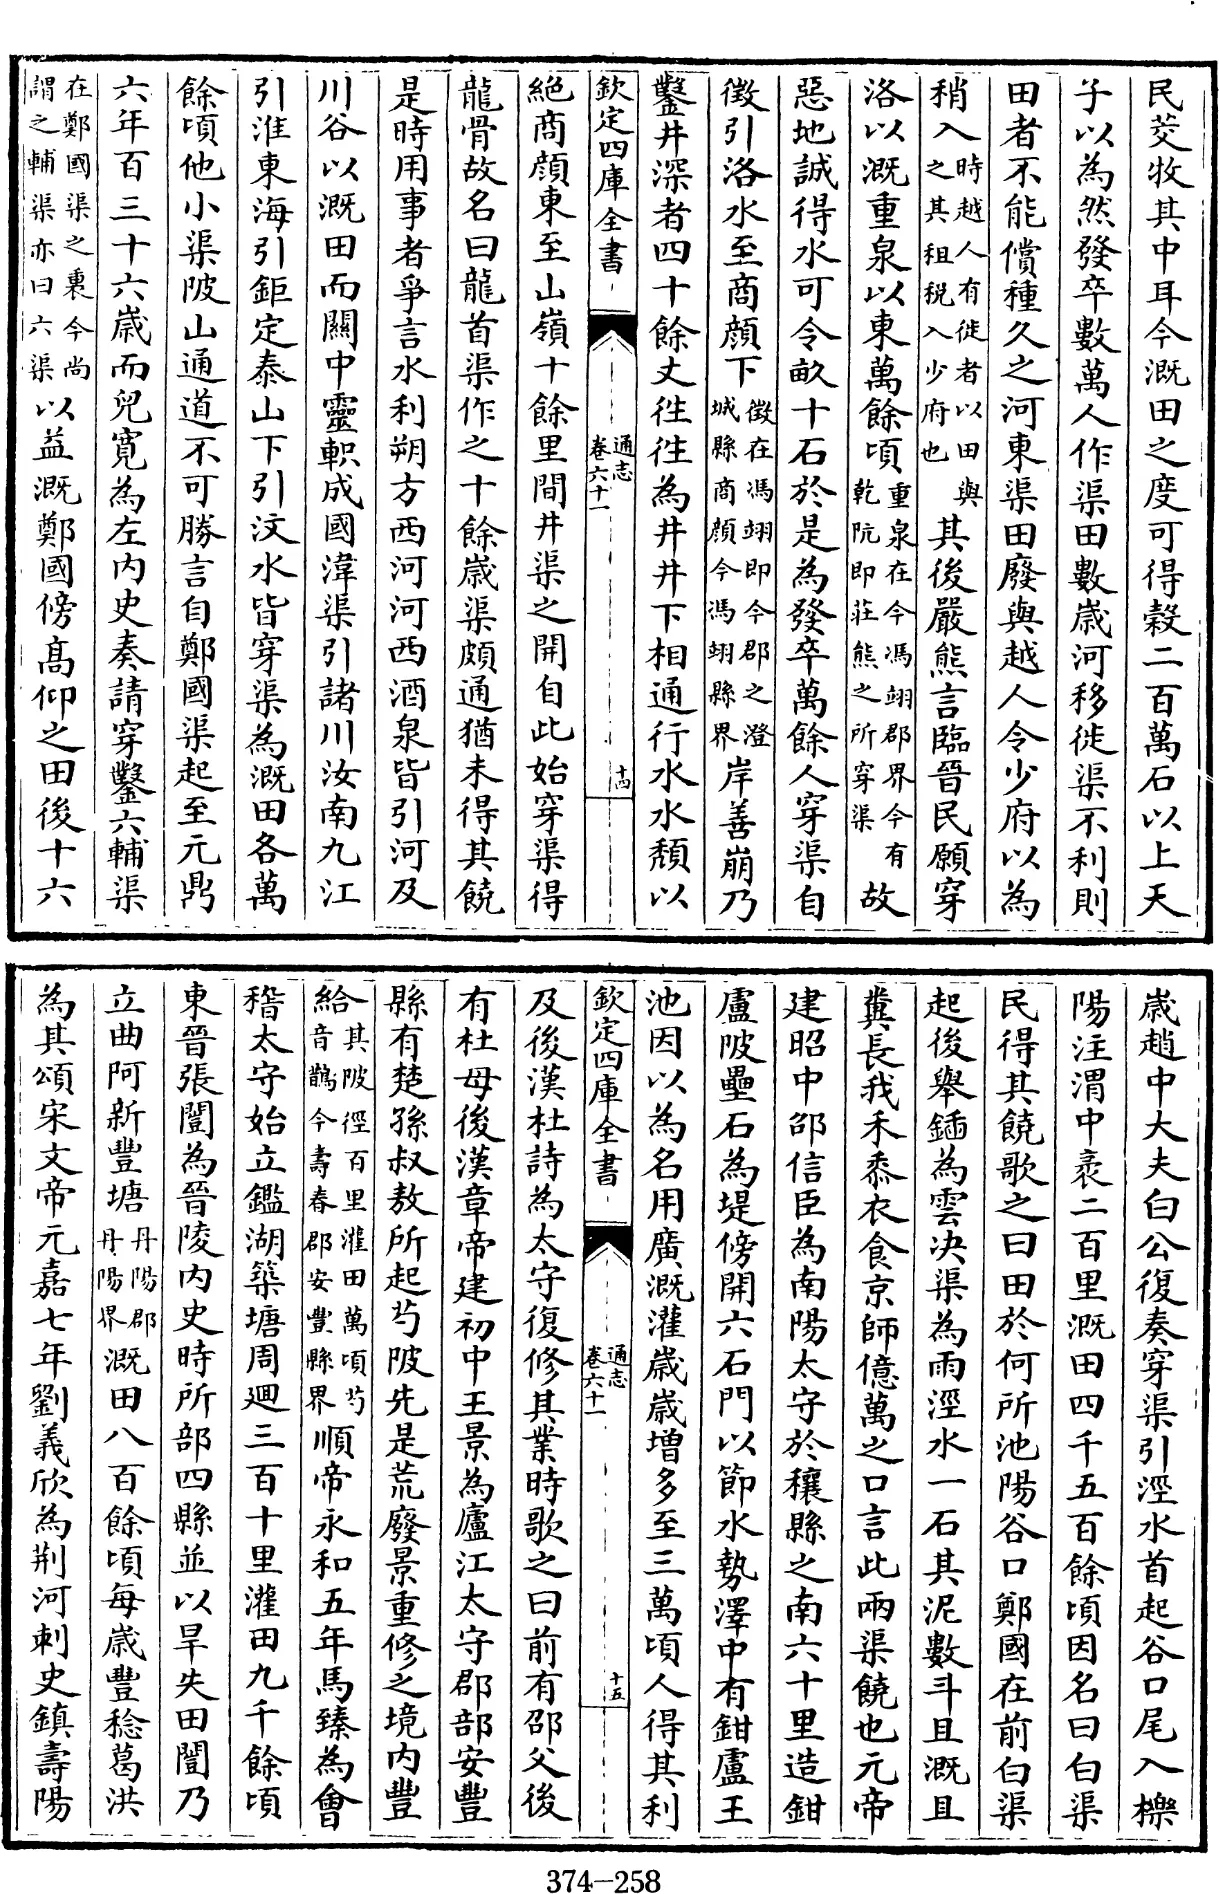 民茭牧其中耳今溉田之度可得穀二百萬石以上天
子以為然發卒數萬人作渠田數歳河移徙渠不利則
田者不能償種久之河東渠田廢與越人令少府以為
稍入時越人有徙者以田與之其租税入少府也其後嚴熊言臨晉民願穿
洛以溉重泉以東萬餘頃重泉在今馮翊郡界今有乾阬即莊熊之所穿渠故
惡地誠得水可令畝十石於是為發卒萬餘人穿渠自
徵引洛水至商顔下徵在馮翊即今郡之澄城縣商顔今馮翊縣界岸善崩乃
鑿井深者四十餘丈徃徃為井井下相通行水水頽以
欽定四庫全書
通志
卷六十一
十四
絶商顔東至山嶺十餘里間井渠之開自此始穿渠得
龍骨故名曰龍首渠作之十餘歳渠頗通猶未得其饒
是時用事者爭言水利朔方西河河西酒泉皆引河及
川谷以溉田而關中靈軹成國漳渠引諸川汝南九江
引淮東海引鉅定泰山下引汶水皆穿渠為溉田各萬
餘頃他小渠陂山通道不可勝言自鄭國渠起至元鼎
六年百三十六歳而兒寛為左内史奏請穿鑿六輔渠
在鄭國渠之裏今尚謂之輔渠亦曰六渠以益溉鄭國傍髙仰之田後十六
歳趙中大夫白公復奏穿渠引涇水首起谷口尾入櫟
陽注渭中袤二百里溉田四千五百餘頃因名曰白渠
民得其饒歌之曰田於何所池陽谷口鄭國在前白渠
起後舉鍤為雲决渠為雨涇水一石其泥數斗且溉且
糞長我禾黍衣食京師億萬之口言此兩渠饒也元帝
建昭中邵信臣為南陽太守於穰縣之南六十里造鉗
盧陂壘石為堤傍開六石門以節水勢澤中有鉗盧王
池因以為名用廣溉灌歳歳增多至三萬頃人得其利
欽定四庫全書
通志
卷六十一
十五
及後漢杜詩為太守復修其業時歌之曰前有邵父後
有杜母後漢章帝建初中王景為廬江太守郡部安豐
縣有楚孫叔敖所起芍陂先是荒廢景重修之境内豐
給其陂徑百里灌田萬頃芍音鵲今壽春郡安豐縣界順帝永和五年馬臻為會
稽太守始立鑑湖築塘周廻三百十里灌田九千餘頃
東晉張闓為晉陵内史時所部四縣並以旱失田闓乃
立曲阿新豐塘丹陽郡丹陽界溉田八百餘頃每歳豐稔葛洪
為其頌宋文帝元嘉七年劉義欣為荆河刺史鎮壽陽
374-258